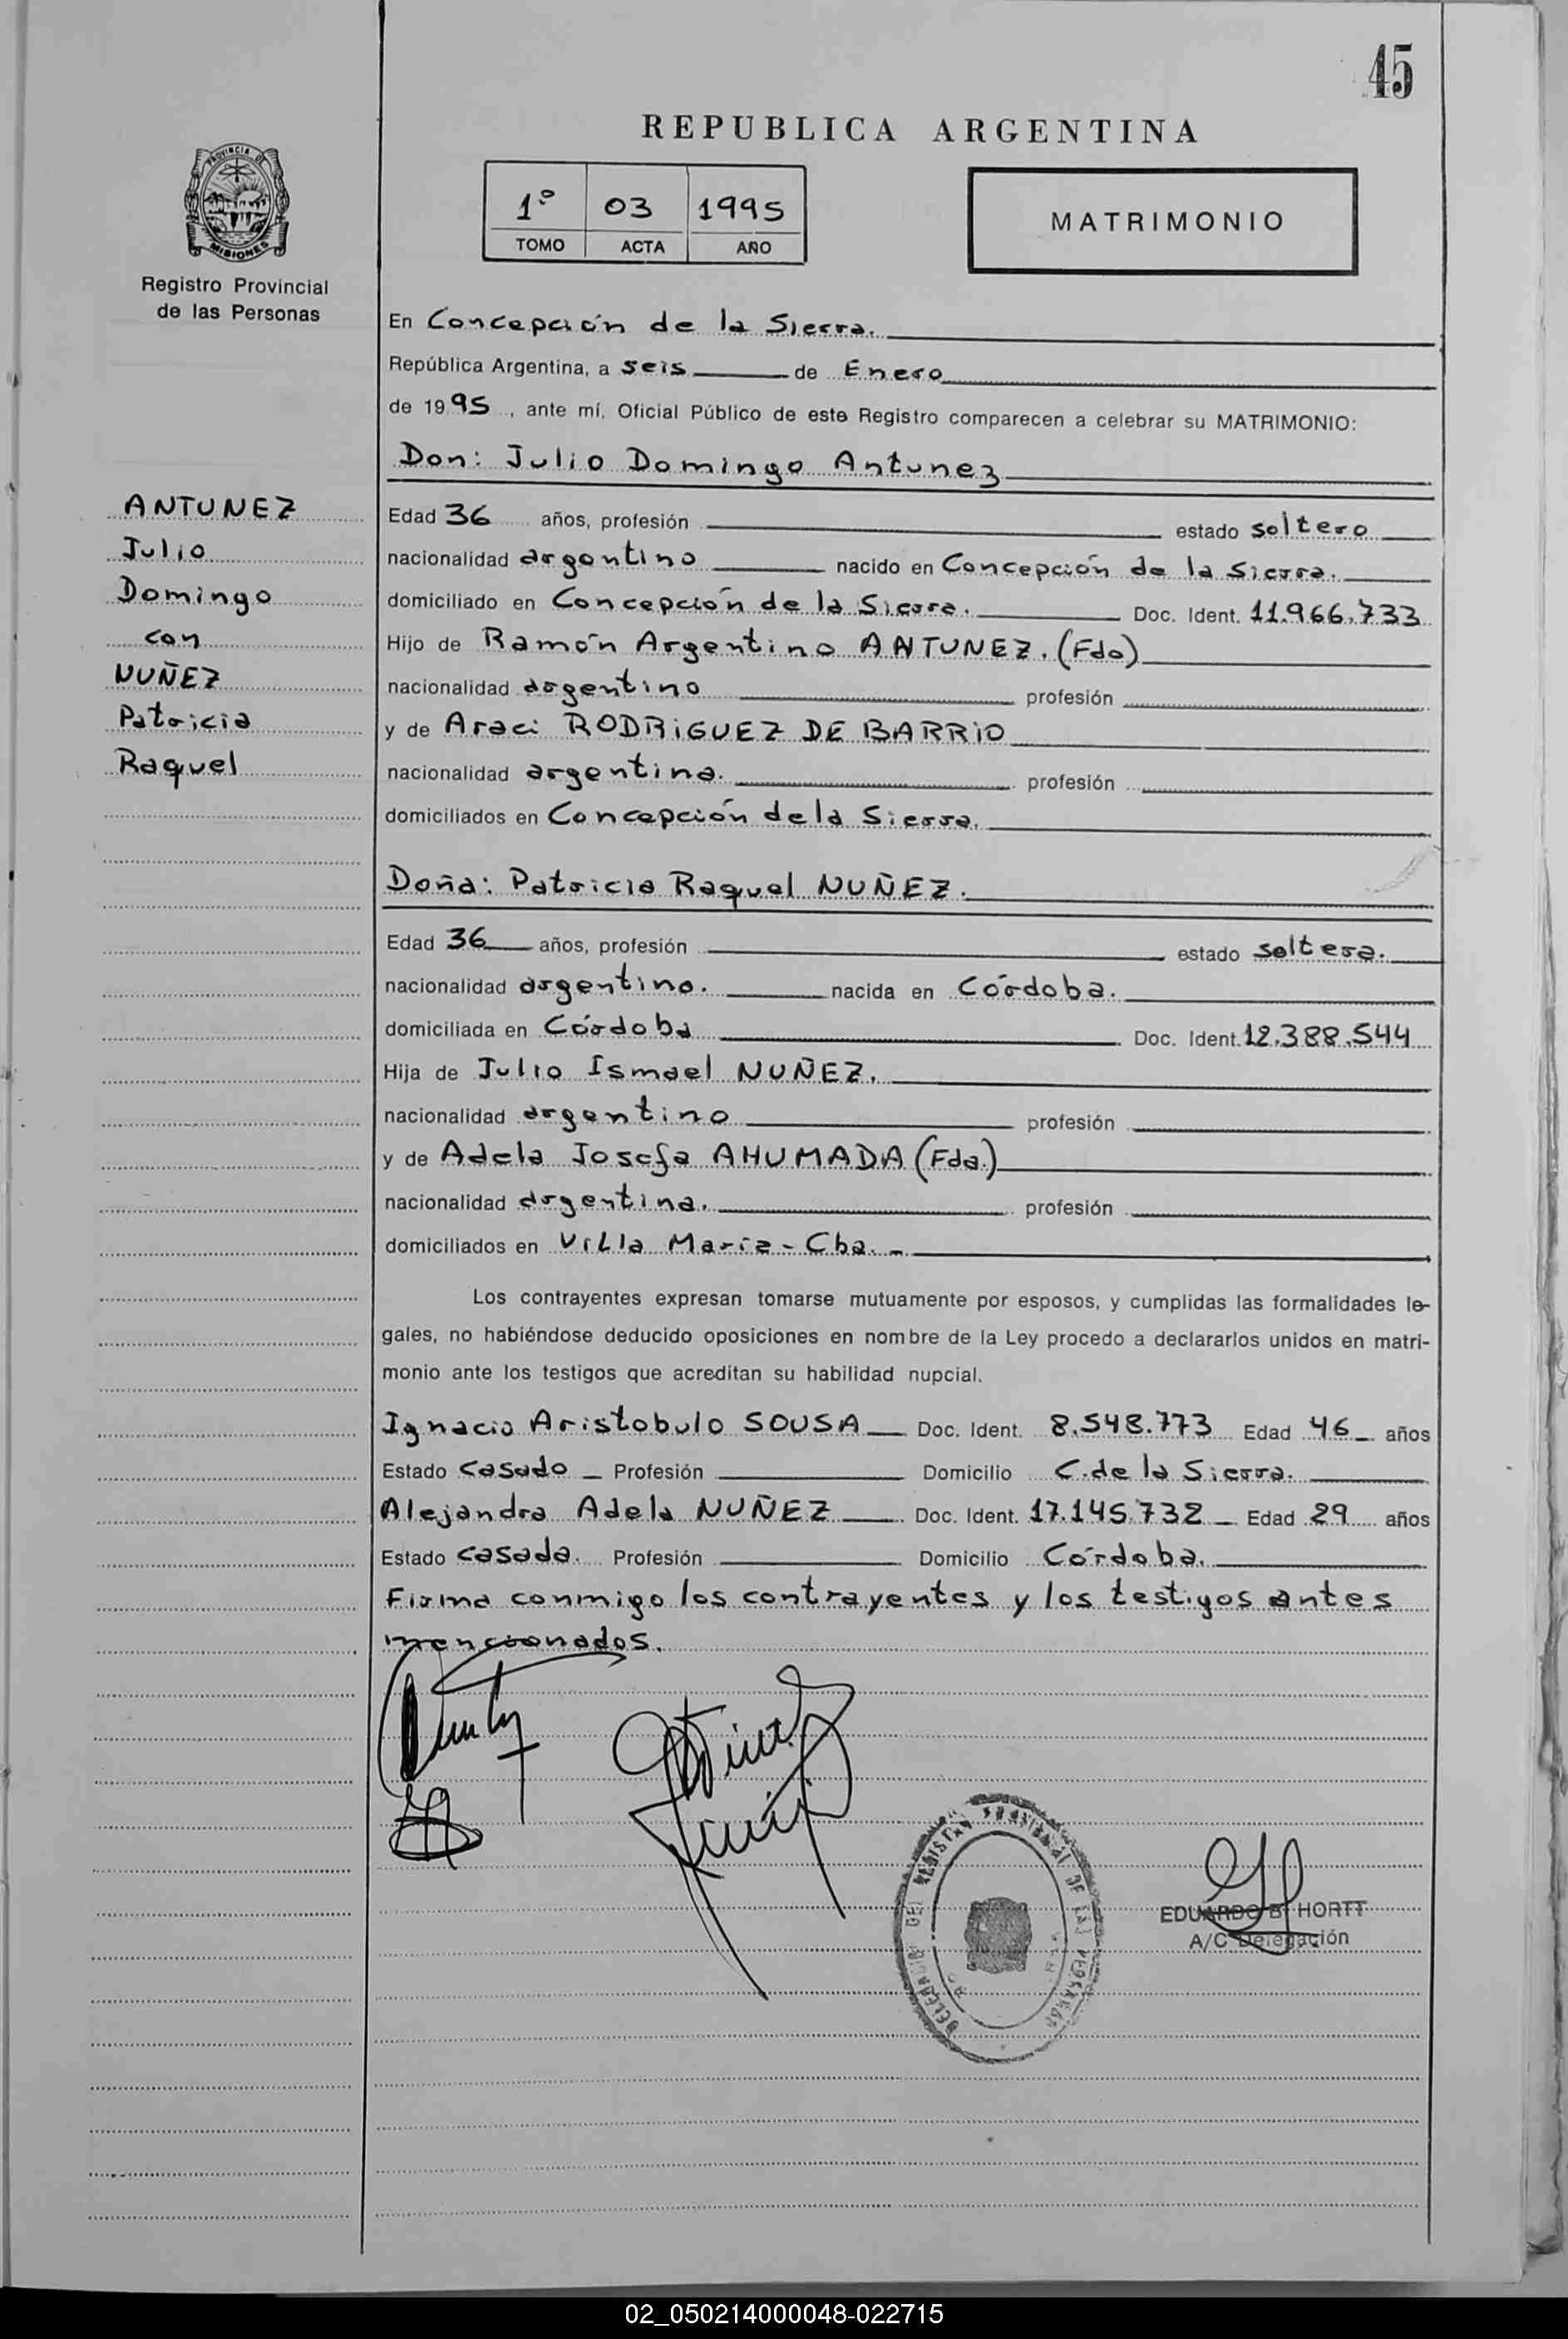 45
REPUBLICA ARGENTINA
1º 03 1995
TOMO ACTA AÑO
MATRIMONIO
PROVINCIA DE
MISIONES
Registro Provincial
de las Personas
ANTUNEZ
Julio
Domingo
con
NUÑEZ
Patricia
Raquel
En Concepción de la Sierra.
República Argentina, a seis de Enero
de 1995, ante mí, Oficial Público de este Registro comparecen a celebrar su MATRIMONIO:
Don: Julio Domingo Antunez
Edad 36 años, profesión estado soltero
nacionalidad argentino nacido en Concepción de la Sierra.
domiciliado en Concepción de la Sierra. Doc. Ident. 11.966.733
Hijo de Ramón Argentino ANTUNEZ. (Fdo)
nacionalidad argentino profesión
y de Araci RODRIGUEZ DE BARRIO
nacionalidad argentina. profesión
domiciliados en Concepción de la Sierra.
Doña: Patricia Raquel NUÑEZ.
Edad 36 años, profesión estado soltera.
nacionalidad argentina. nacida en Córdoba.
domiciliada en Córdoba Doc. Ident. 12.388.544
Hija de Julio Ismael NUÑEZ.
nacionalidad argentino profesión
y de Adela Josefa AHUMADA (Fda.)
nacionalidad argentina. profesión
domiciliados en Villa María - Cba. -
Los contrayentes expresan tomarse mutuamente por esposos, y cumplidas las formalidades le-
gales, no habiéndose deducido oposiciones en nombre de la Ley procedo a declararlos unidos en matri-
monio ante los testigos que acreditan su habilidad nupcial.
Ignacio Aristobulo SOUSA Doc. Ident. 8.548.773 Edad 46 años
Estado casado Profesión Domicilio C. de la Sierra.
Alejandra Adela NUÑEZ Doc. Ident. 17.145.732 Edad 29 años
Estado casada. Profesión Domicilio Córdoba.
Firma conmigo los contrayentes y los testigos antes
mencionados.
EDUARDO B. HORTT
A/C Delegación
02_050214000048-022715